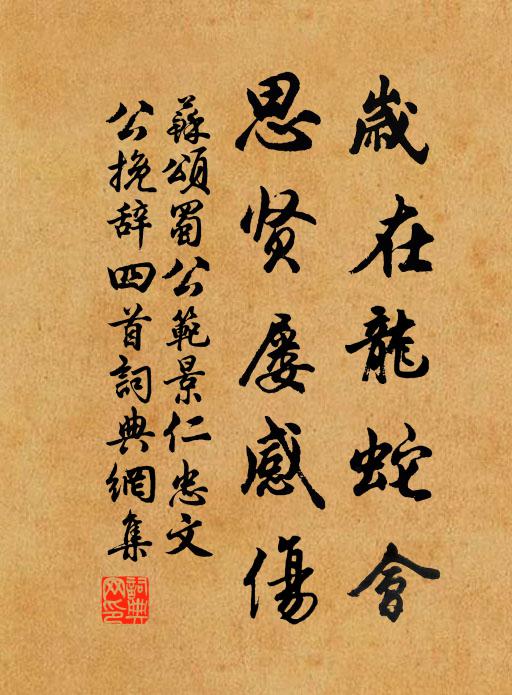 歲在龍蛇會
思贤屡感傷
蘇頌蜀公範景仁忠文
公挽辞四首詞典網集
詞典网印